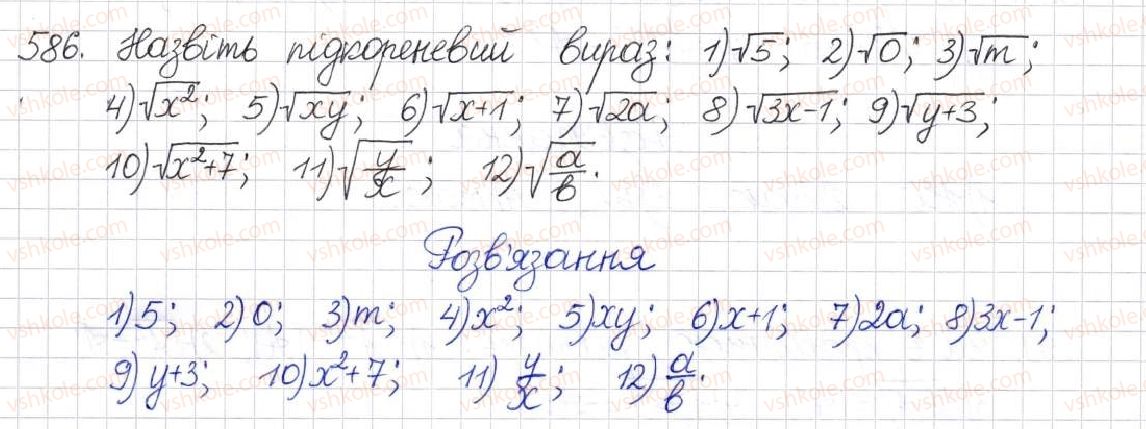 586. Назвіть підкореневий вираз: 1)√5; 2)√0; 3)√m;
4)√x²; 5)√xy; 6)√x+1; 7)√2a; 8)√3x-1; 9)√y+3;
10)√x²+7; 11)√y/x; 12)√a/b.
Розв'язання
1)5; 2)0; 3)m; 4)x²; 5)xy; 6)x+1; 7)2a; 8)3x-1;
9)y+3; 10)x²+7; 11) y/x; 12) a/b.